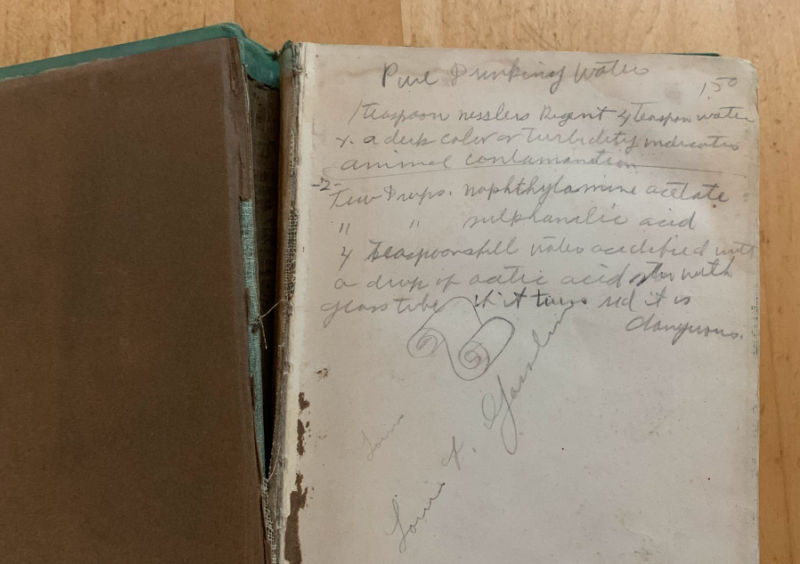 Pure Drinking Water
1.50
1 teaspoon nesslers Regent 4 teaspon water
x. a deep color or turbidity indicates
animal contamanation
-2-
Few Drops. naphthylamine acetate
" " sulphanilic acid
4 teaspoonsfull water acidified with
a drop of acetic acid stir with
glass tube if it turns red it is
dangerous.
Louis
Louis F.